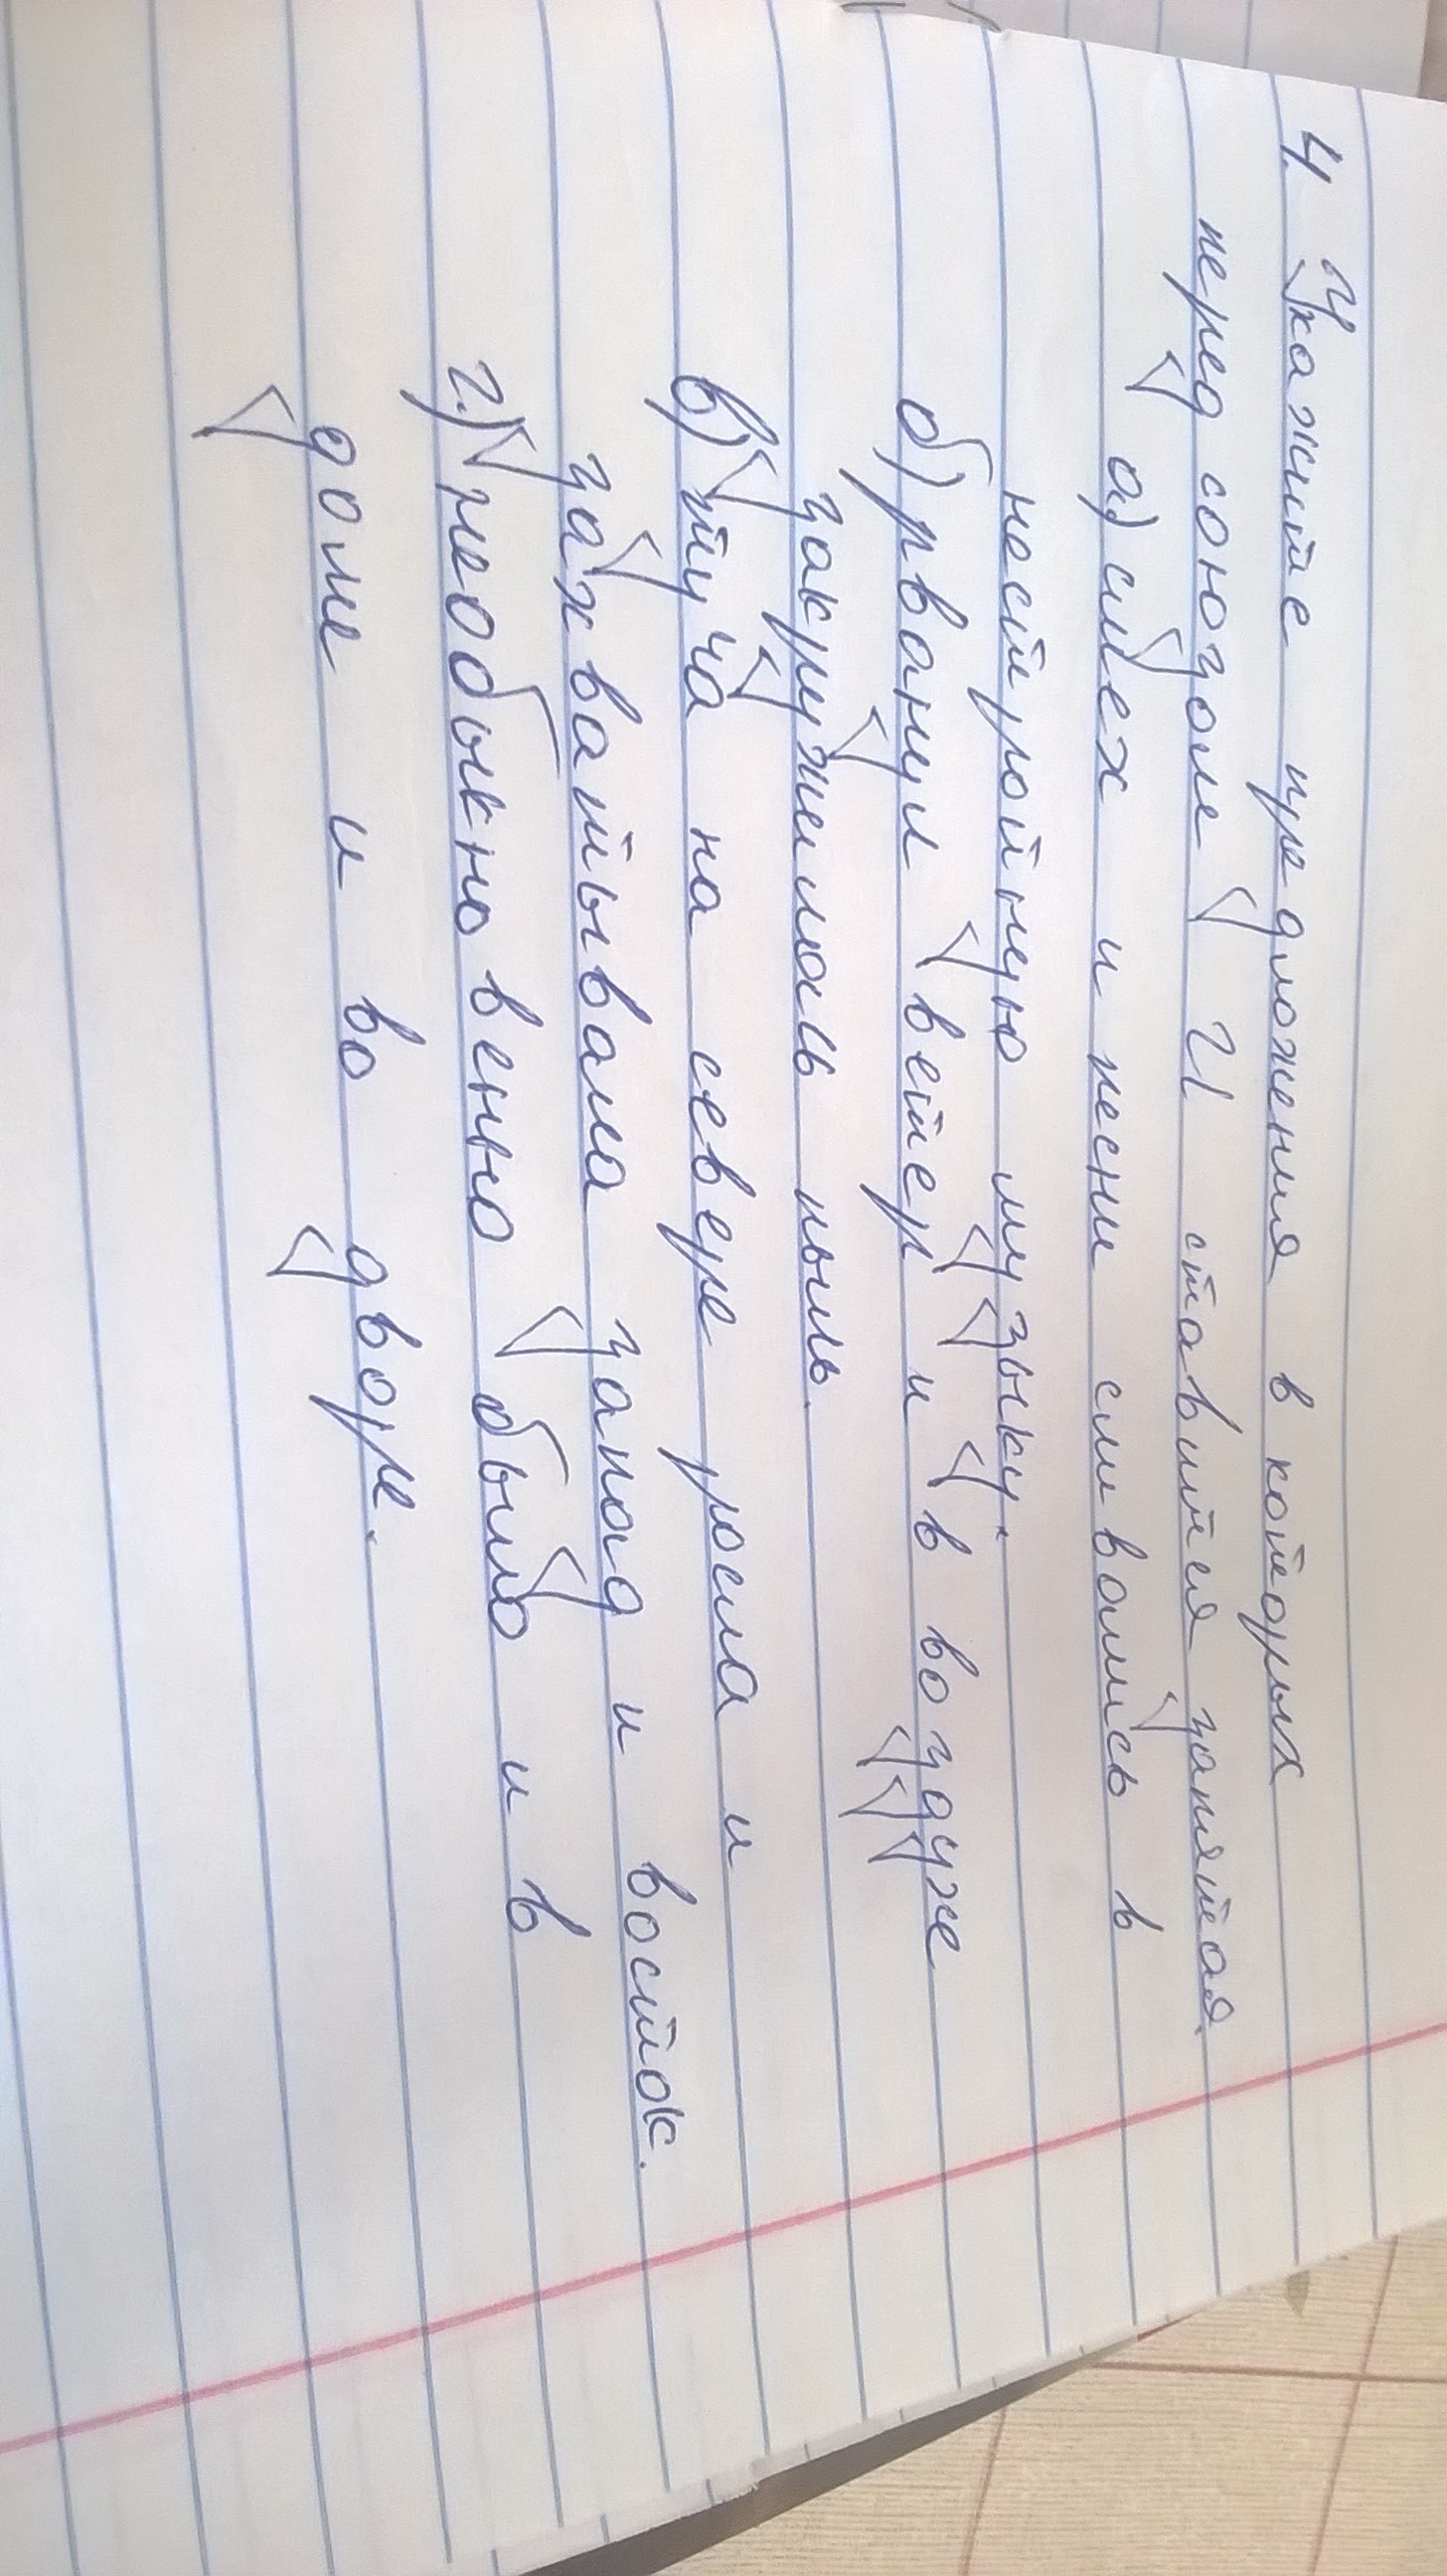 4. Укажите предложения в которых
перед союзом И ставится запятая.
а) смех и песни сливались в
нестройную музыку.
б) рванул ветер и в воздухе
закружилась пыль.
в) туча на севере росла и
захватывала запад и восток.
г.) необыкновенно было и в
доме и во дворе.